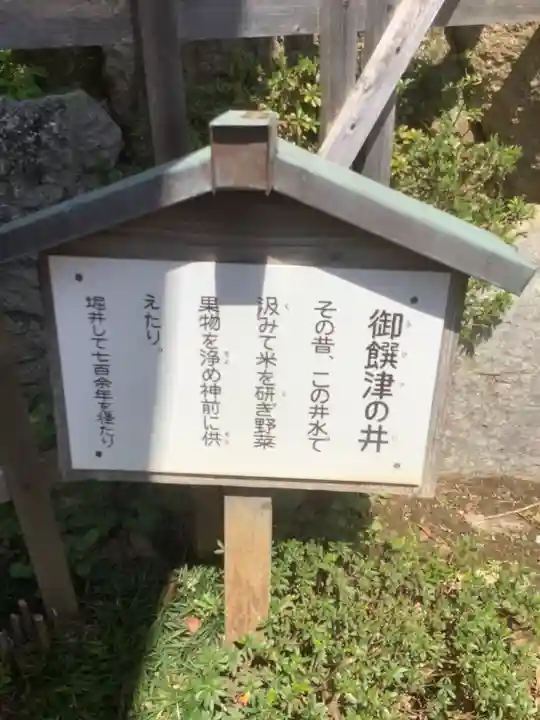 御饌津の井
その昔、この井水で
汲みて米を研ぎ野菜
果物を浄め神前に供
えたり。
堀井して七百余年を経たり